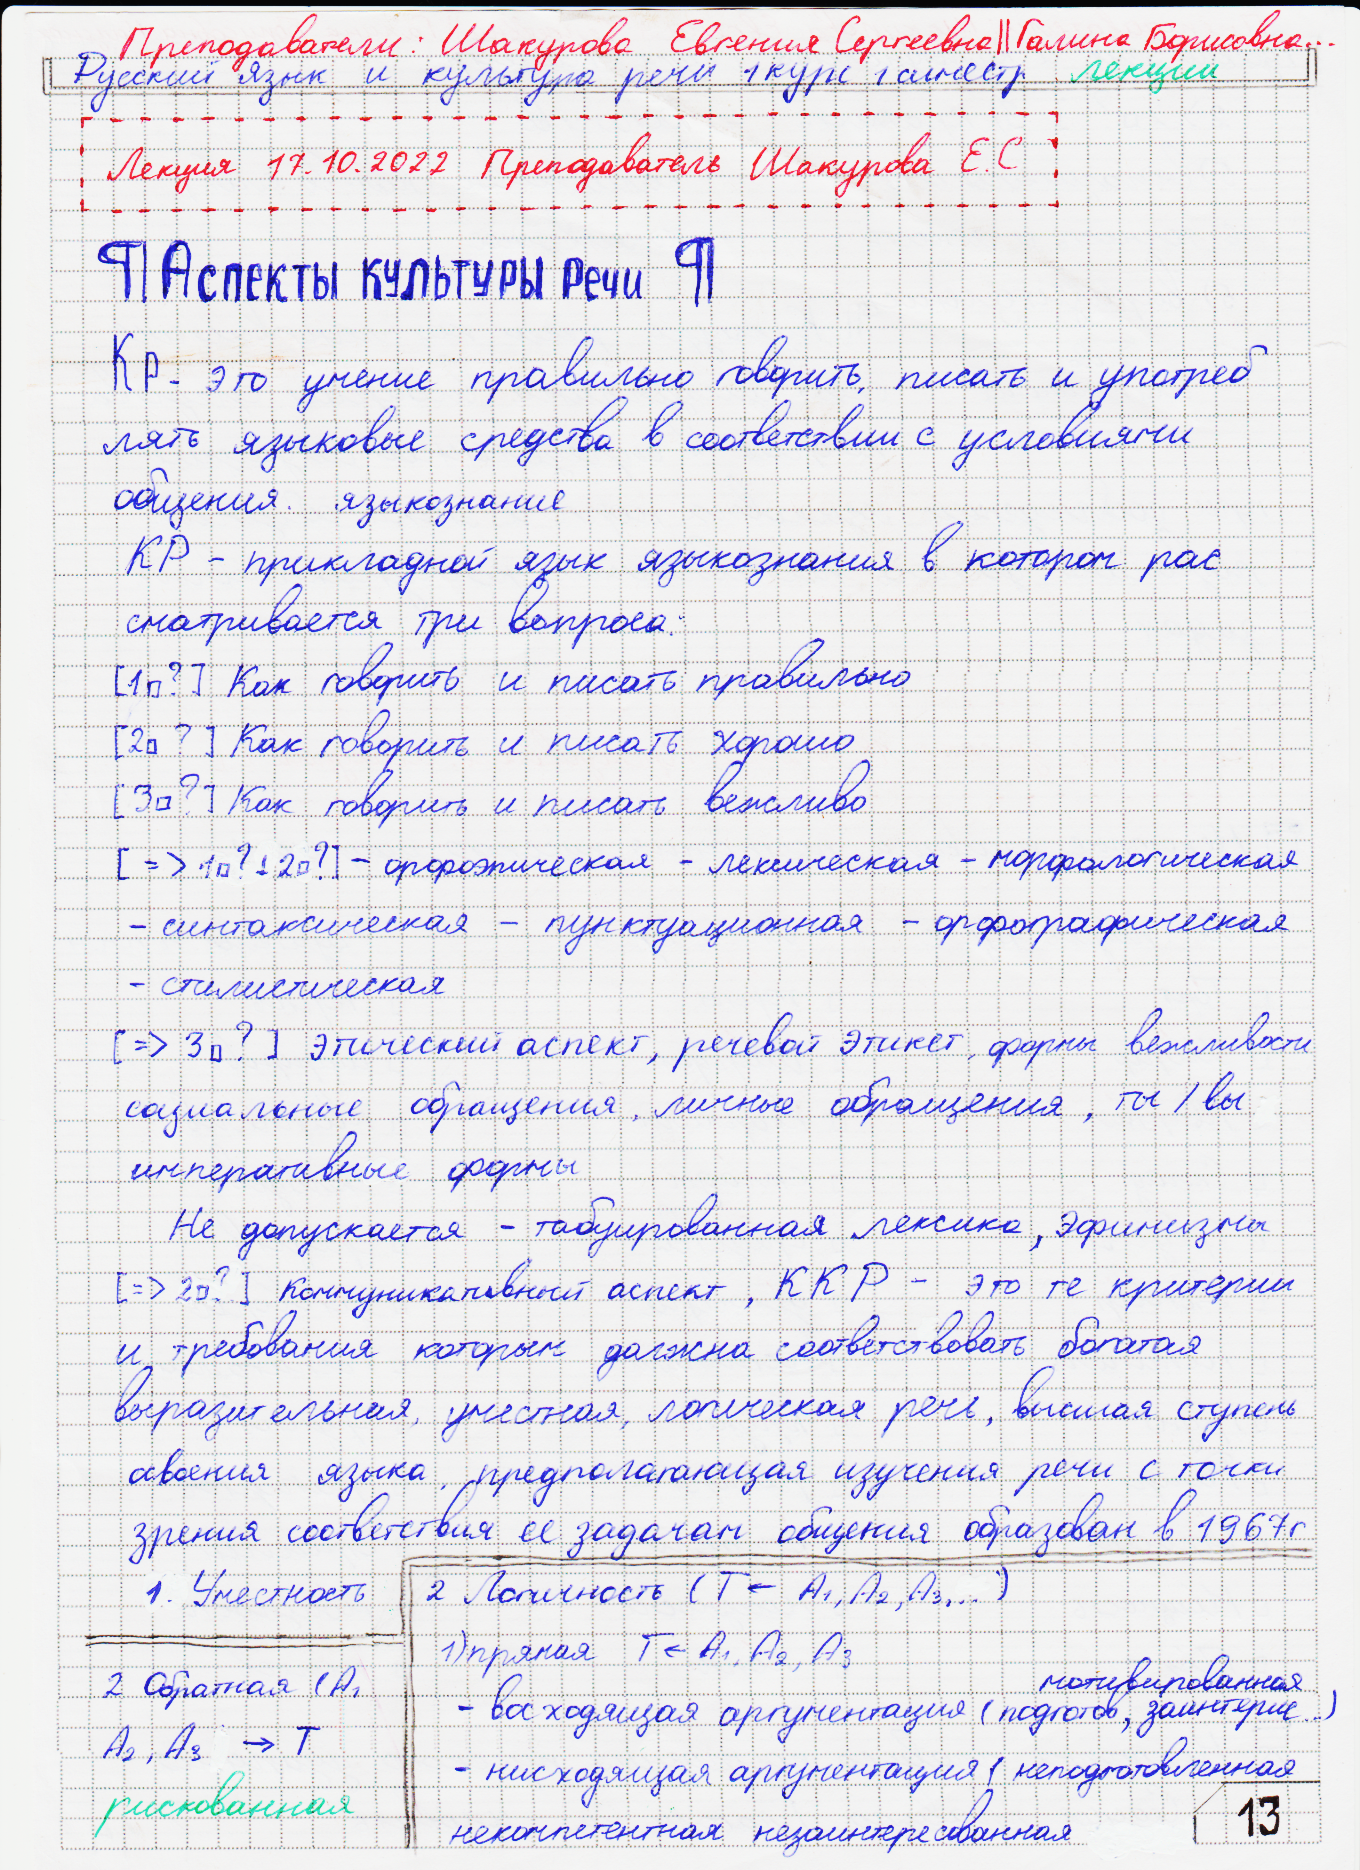 Преподаватели: Шакурова Евгения Сергеевна || Галина Борисовна...
Русский язык и культура речи 1 курс 1 семестр лекции
Лекция 17.10.2022 Преподаватель Шакурова Е.С
¶ Аспекты культуры речи ¶
КР - это умение правильно говорить, писать и употреб
лять языковые средства в соответствии с условиями
общения. языкознание
КР - прикладной язык языкознания в котором рас
сматривается три вопроса:
[1□?] Как говорить и писать правильно
[2□?] Как говорить и писать хорошо
[3□?] Как говорить и писать вежливо
[=> 1□? 2□?] - орфоэпическая - лексическая - морфологическая
- синтаксическая - пунктуационная - орфографическая
- стилистическая
[=> 3□?] этический аспект, речевой этикет, формы вежливости
социальные обращения, личные обращения, ты / вы
императивные формы
Не допускается - табуированная лексика, эфимизмы
[=> 2□?] коммуникативный аспект, ККР - это те критерии
и требования которым должна соответствовать богатая
выразительная, уместная, логическая речь, высшая ступень
освоения языка, предполагающая изучения речи с точки
зрения соответствия ее задачам общения образован в 1967г
1. Уместность
2 Логичность (Т ← А1, А2, А3,...)
1) прямая Т ← А1, А2, А3
мотивированная
- восходящая аргументация (подготов, заинтерис...)
- нисходящая аргументация ( неподготовленная
некомпетентная незаинтересованная
2 Обратная (А1
А2, А3 → Т
рискованная
13